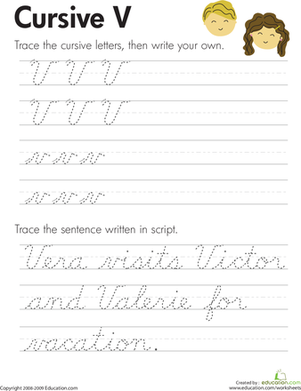 Cursive V
Trace the cursive letters, then write your own.
V V V
V V V
v v v
v v v
Trace the sentence written in script.
Vera visits Victor
and Valerie for
vacation.
Copyright 2008-2009 Education.com
Created by: education.com
www.education.com/worksheets